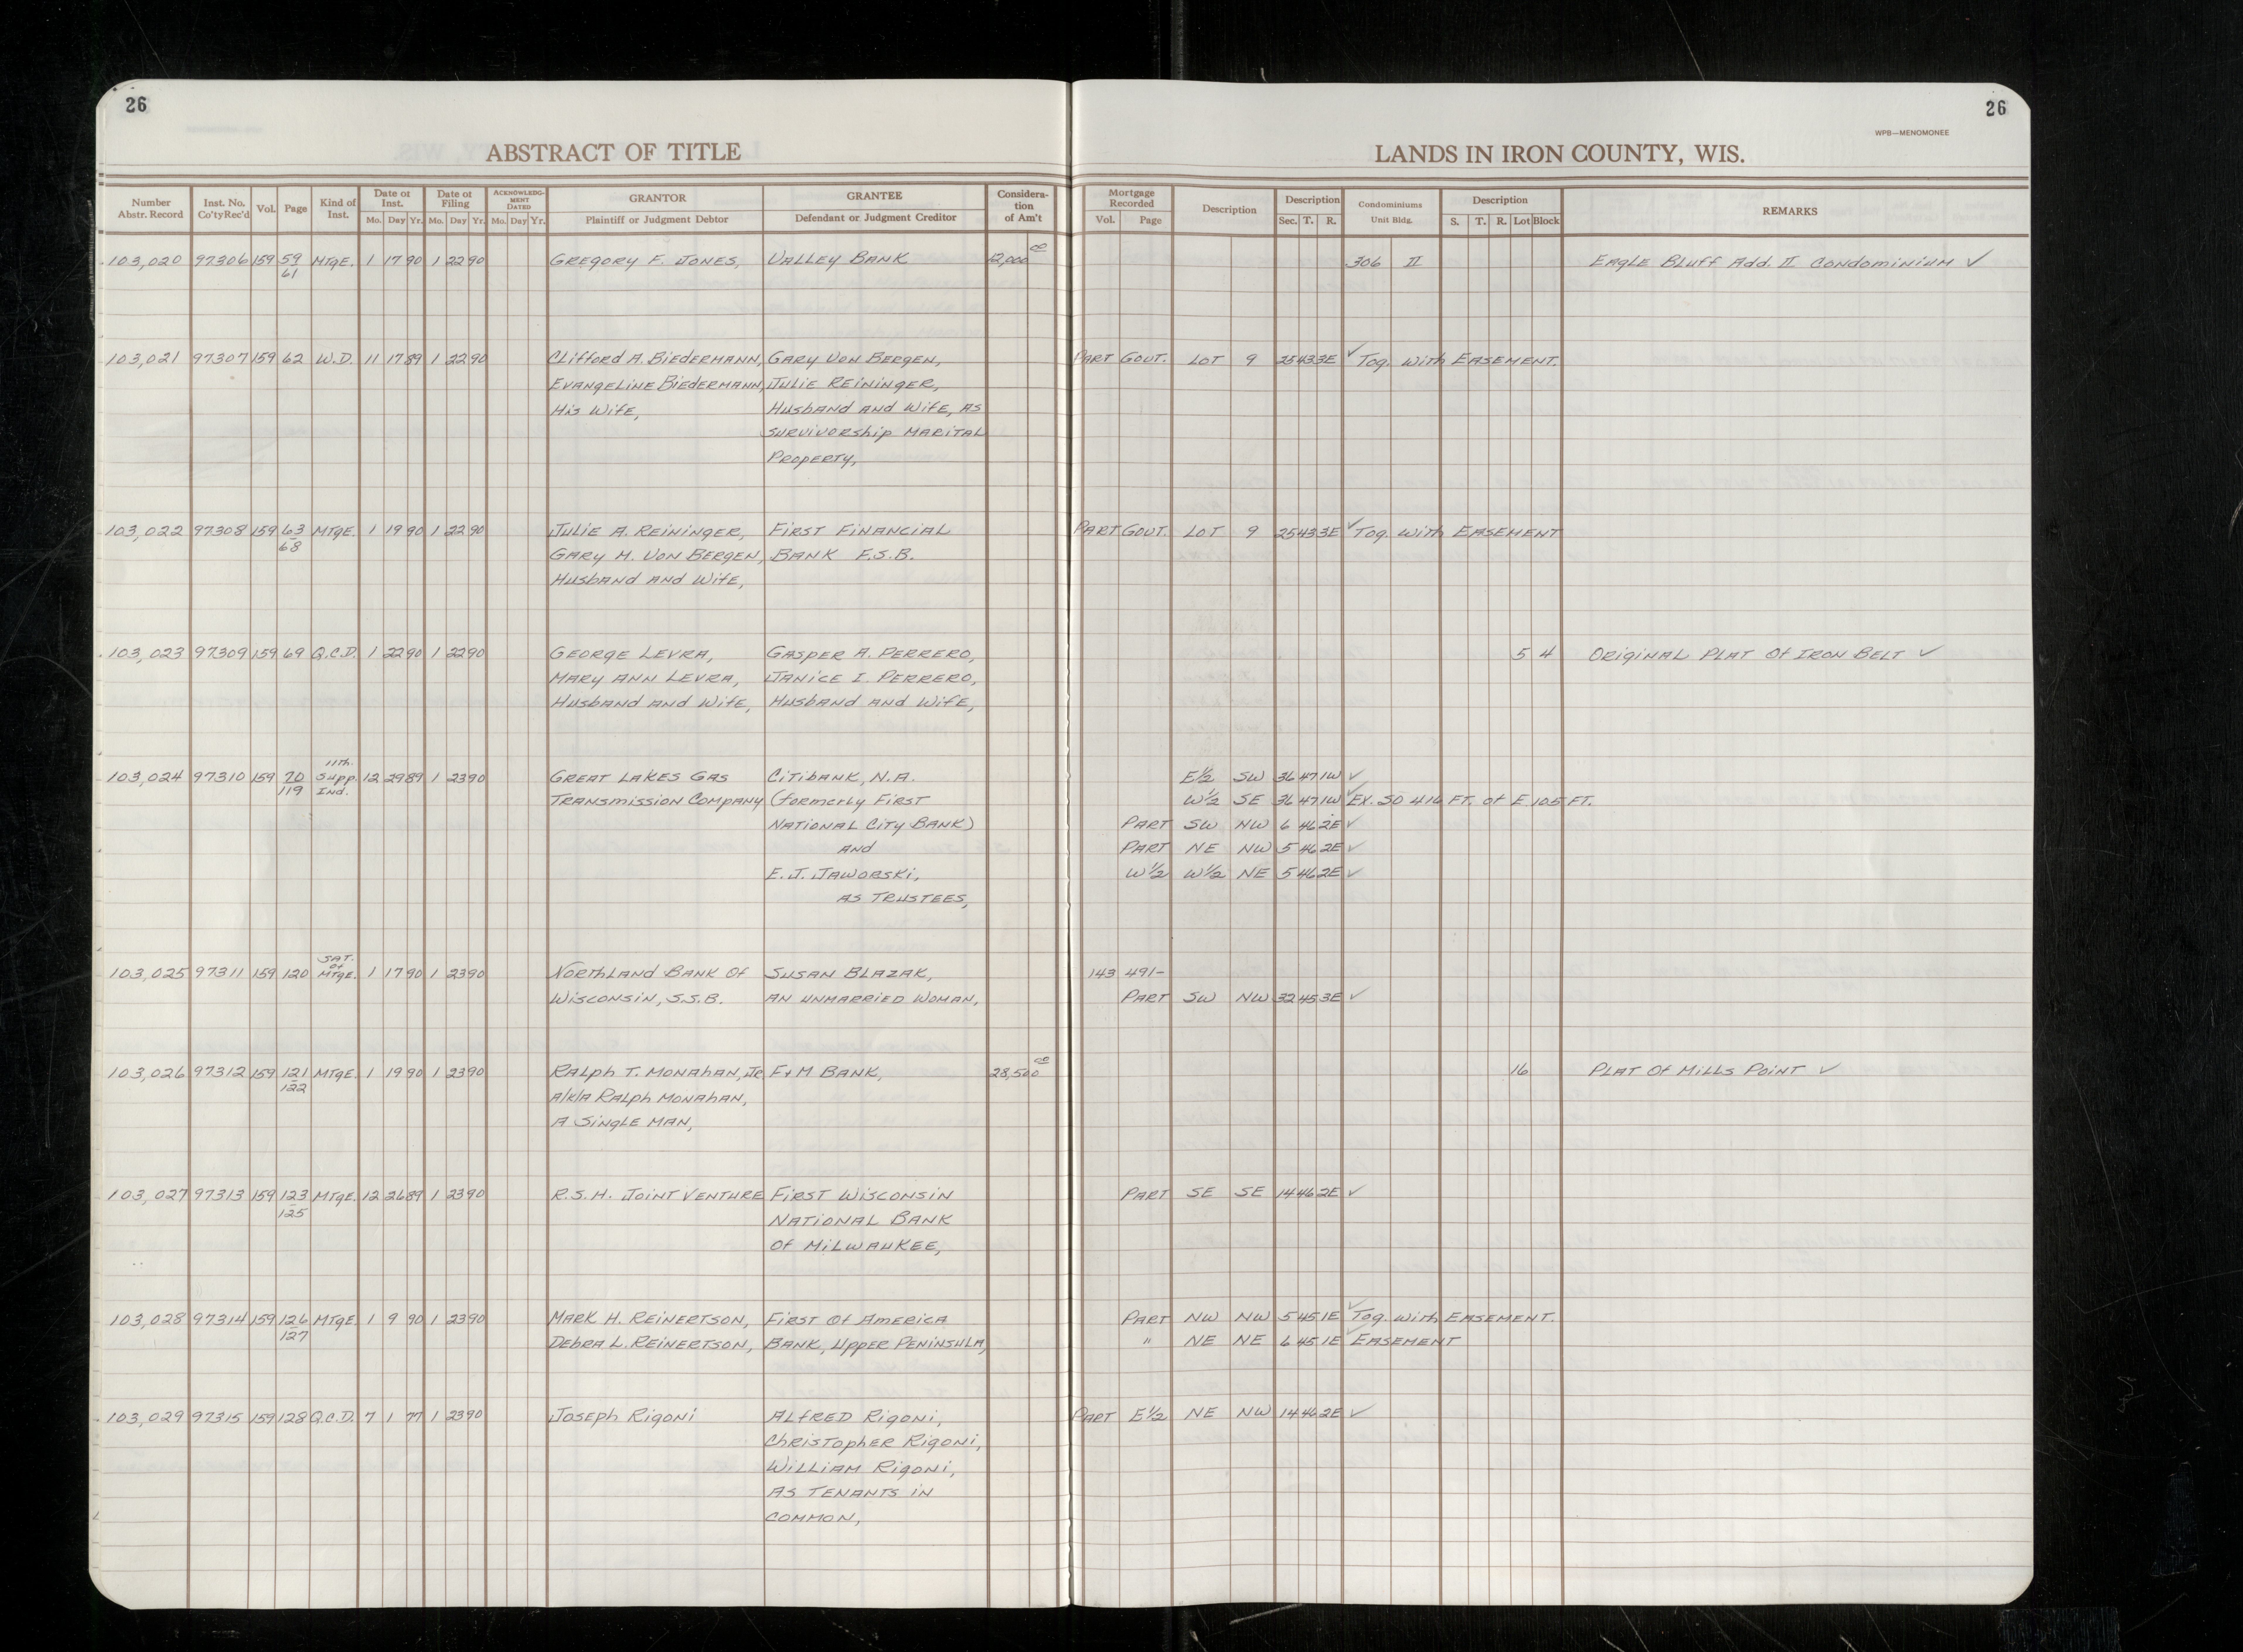 26
26
WPB—MENOMONEE
ABSTRACT OF TITLE
LANDS IN IRON COUNTY, WIS.
Number Abstr. Record | Inst. No. Co'ty Rec'd | Vol. | Page | Kind of Inst. | Date of Inst. Mo. Day Yr. | Date of Filing Mo. Day Yr. | ACKNOWLEDGMENT DATED Mo. Day Yr. | GRANTOR Plaintiff or Judgment Debtor | GRANTEE Defendant or Judgment Creditor | Consideration of Am't | Mortgage Recorded Vol. Page | Description | Description Sec. T. R. | Condominiums Unit Bldg. | Description S. T. R. Lot Block | REMARKS
103,020 97306 159 59 MTGE. 1 17 90 1 22 90 GREGORY F. JONES, VALLEY BANK 12,000 00 306 II EAGLE BLUFF Add. II CONDOMINIUM ✓
61
103,021 97307 159 62 W.D. 11 17 89 1 22 90 CLIFFORD A. BIEDERMANN, GARY VON BERGEN, PART GOVT. LOT 9 25 43 3E ✓ Tog. with EASEMENT.
EVANGELINE BIEDERMANN, JULIE REININGER,
His Wife, Husband and Wife, as
survivorship MARITAL
PROPERTY,
103,022 97308 159 63 MTGE. 1 19 90 1 22 90 JULIE A. REININGER, FIRST FINANCIAL PART GOVT. LOT 9 25 43 3E ✓ Tog. with EASEMENT
68 GARY M. VON BERGEN, BANK F.S.B.
Husband and Wife,
103,023 97309 159 69 Q.C.D. 1 22 90 1 22 90 GEORGE LEVRA, GASPER A. PERRERO, 5 4 ORIGINAL PLAT Of IRON BELT ✓
MARY ANN LEVRA, JANICE I. PERRERO,
Husband and Wife, Husband and Wife,
11th.
103,024 97310 159 70 Supp. 12 29 89 1 23 90 GREAT LAKES GAS CITIBANK, N.A. E½ SW 36 47 1W ✓
119 Ind. TRANSMISSION COMPANY (formerly FIRST W½ SE 36 47 1W ✓ EX. SO 416 FT. of E 105 FT.
NATIONAL CITY BANK) PART SW NW 6 46 2E ✓
AND PART NE NW 5 46 2E ✓
E. J. JAWORSKI, W½ W½ NE 5 46 2E ✓
AS TRUSTEES,
SAT. Of
103,025 97311 159 120 MTGE. 1 17 90 1 23 90 NORTHLAND BANK Of SUSAN BLAZAK, 143 491-
WISCONSIN, S.S.B. AN UNMARRIED WOMAN, PART SW NW 32 45 3E ✓
103,026 97312 159 121 MTGE. 1 19 90 1 23 90 RALPH T. MONAHAN, JR. F+M BANK, 28,500 00 16 PLAT Of MILLS POINT ✓
122 A/K/A RALPH MONAHAN,
A SINGLE MAN,
103,027 97313 159 123 MTGE. 12 26 89 1 23 90 R.S.H. JOINT VENTURE FIRST WISCONSIN PART SE SE 14 46 2E ✓
125 NATIONAL BANK
Of MILWAUKEE,
103,028 97314 159 126 MTGE. 1 9 90 1 23 90 MARK H. REINERTSON, FIRST Of AMERICA PART NW NW 5 45 1E ✓ Tog. with EASEMENT.
127 DEBRA L. REINERTSON, BANK, UPPER PENINSULA, " NE NE 6 45 1E ✓ EASEMENT
103,029 97315 159 128 Q.C.D. 7 1 77 1 23 90 JOSEPH RIGONI ALFRED RIGONI, PART E½ NE NW 14 46 2E ✓
CHRISTOPHER RIGONI,
WILLIAM RIGONI,
AS TENANTS IN
COMMON,